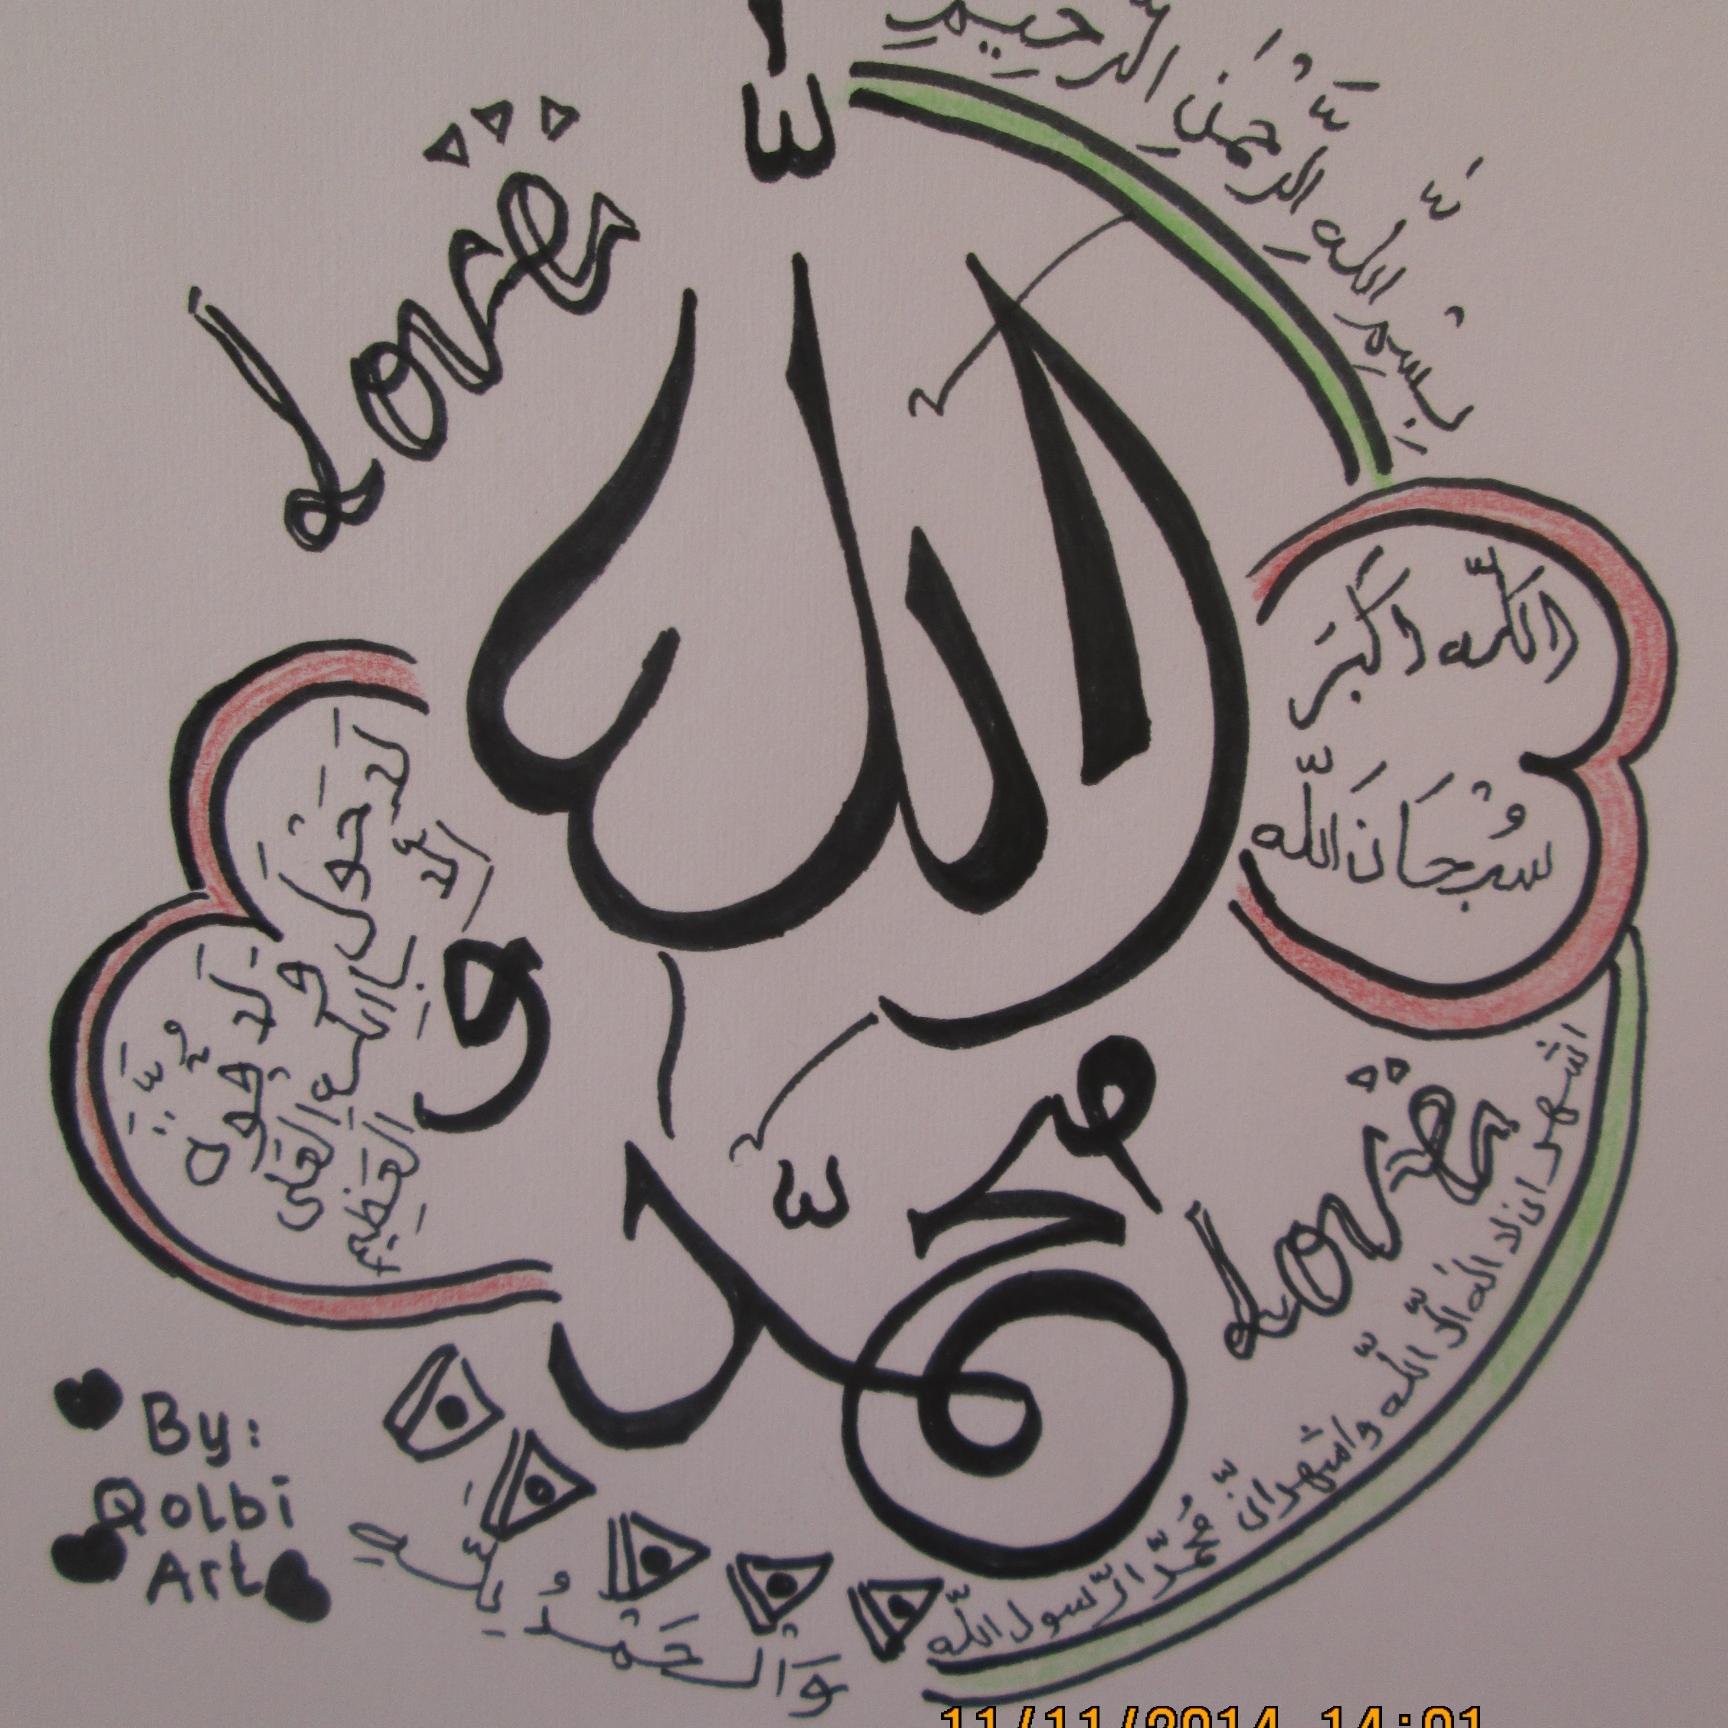 بِسْمِ اللّٰهِ الرَّحْمٰنِ الرَّحِيمِ
Love
اللّٰه
اللّٰه اَكْبَر
سُبْحَانَ اللّٰه
لَا حَوْلَ
وَلَا قُوَّةَ
اِلَّا بِاللّٰهِ
العَلى
العَظِيْم
و
محمّد
Love
اشهد ان لا اله الّا اللّٰه واشهد انّ مُحمّد الرّسول اللّٰه
وَالْحَمْدُ لِلّٰهِ
By:
Qolbi
Art
11/11/2014 14:01